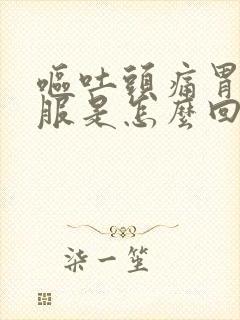 嘔吐頭痛胃
服是怎麼回
柒一笙